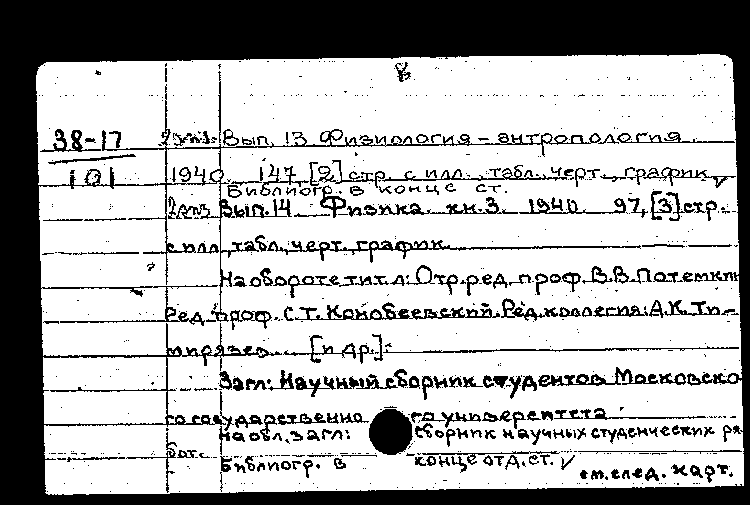 в
38-17 2 экз. Вып. 13 Физиология - антропология
101 1940. 147, [2] стр. с илл., табл., черт., график.
Библиогр. в конце ст.
2 экз Вып. 14. Физика. кн. 3. 1940. 97, [3] стр.
с илл., табл., черт., график.
На обороте тит. л: Отр. ред. проф. В.В. Потемкин
Ред. проф. С.Т. Конобеевский. Ред. коллегия: А.К. Ти-
мирязев... [и др.].
Загл: Научный сборник студентов Московско
го государственно го университета
На обл. загл: Сборник научных студенческих ра
бот.
Библиогр. в конце отд. ст.
см. след. карт.